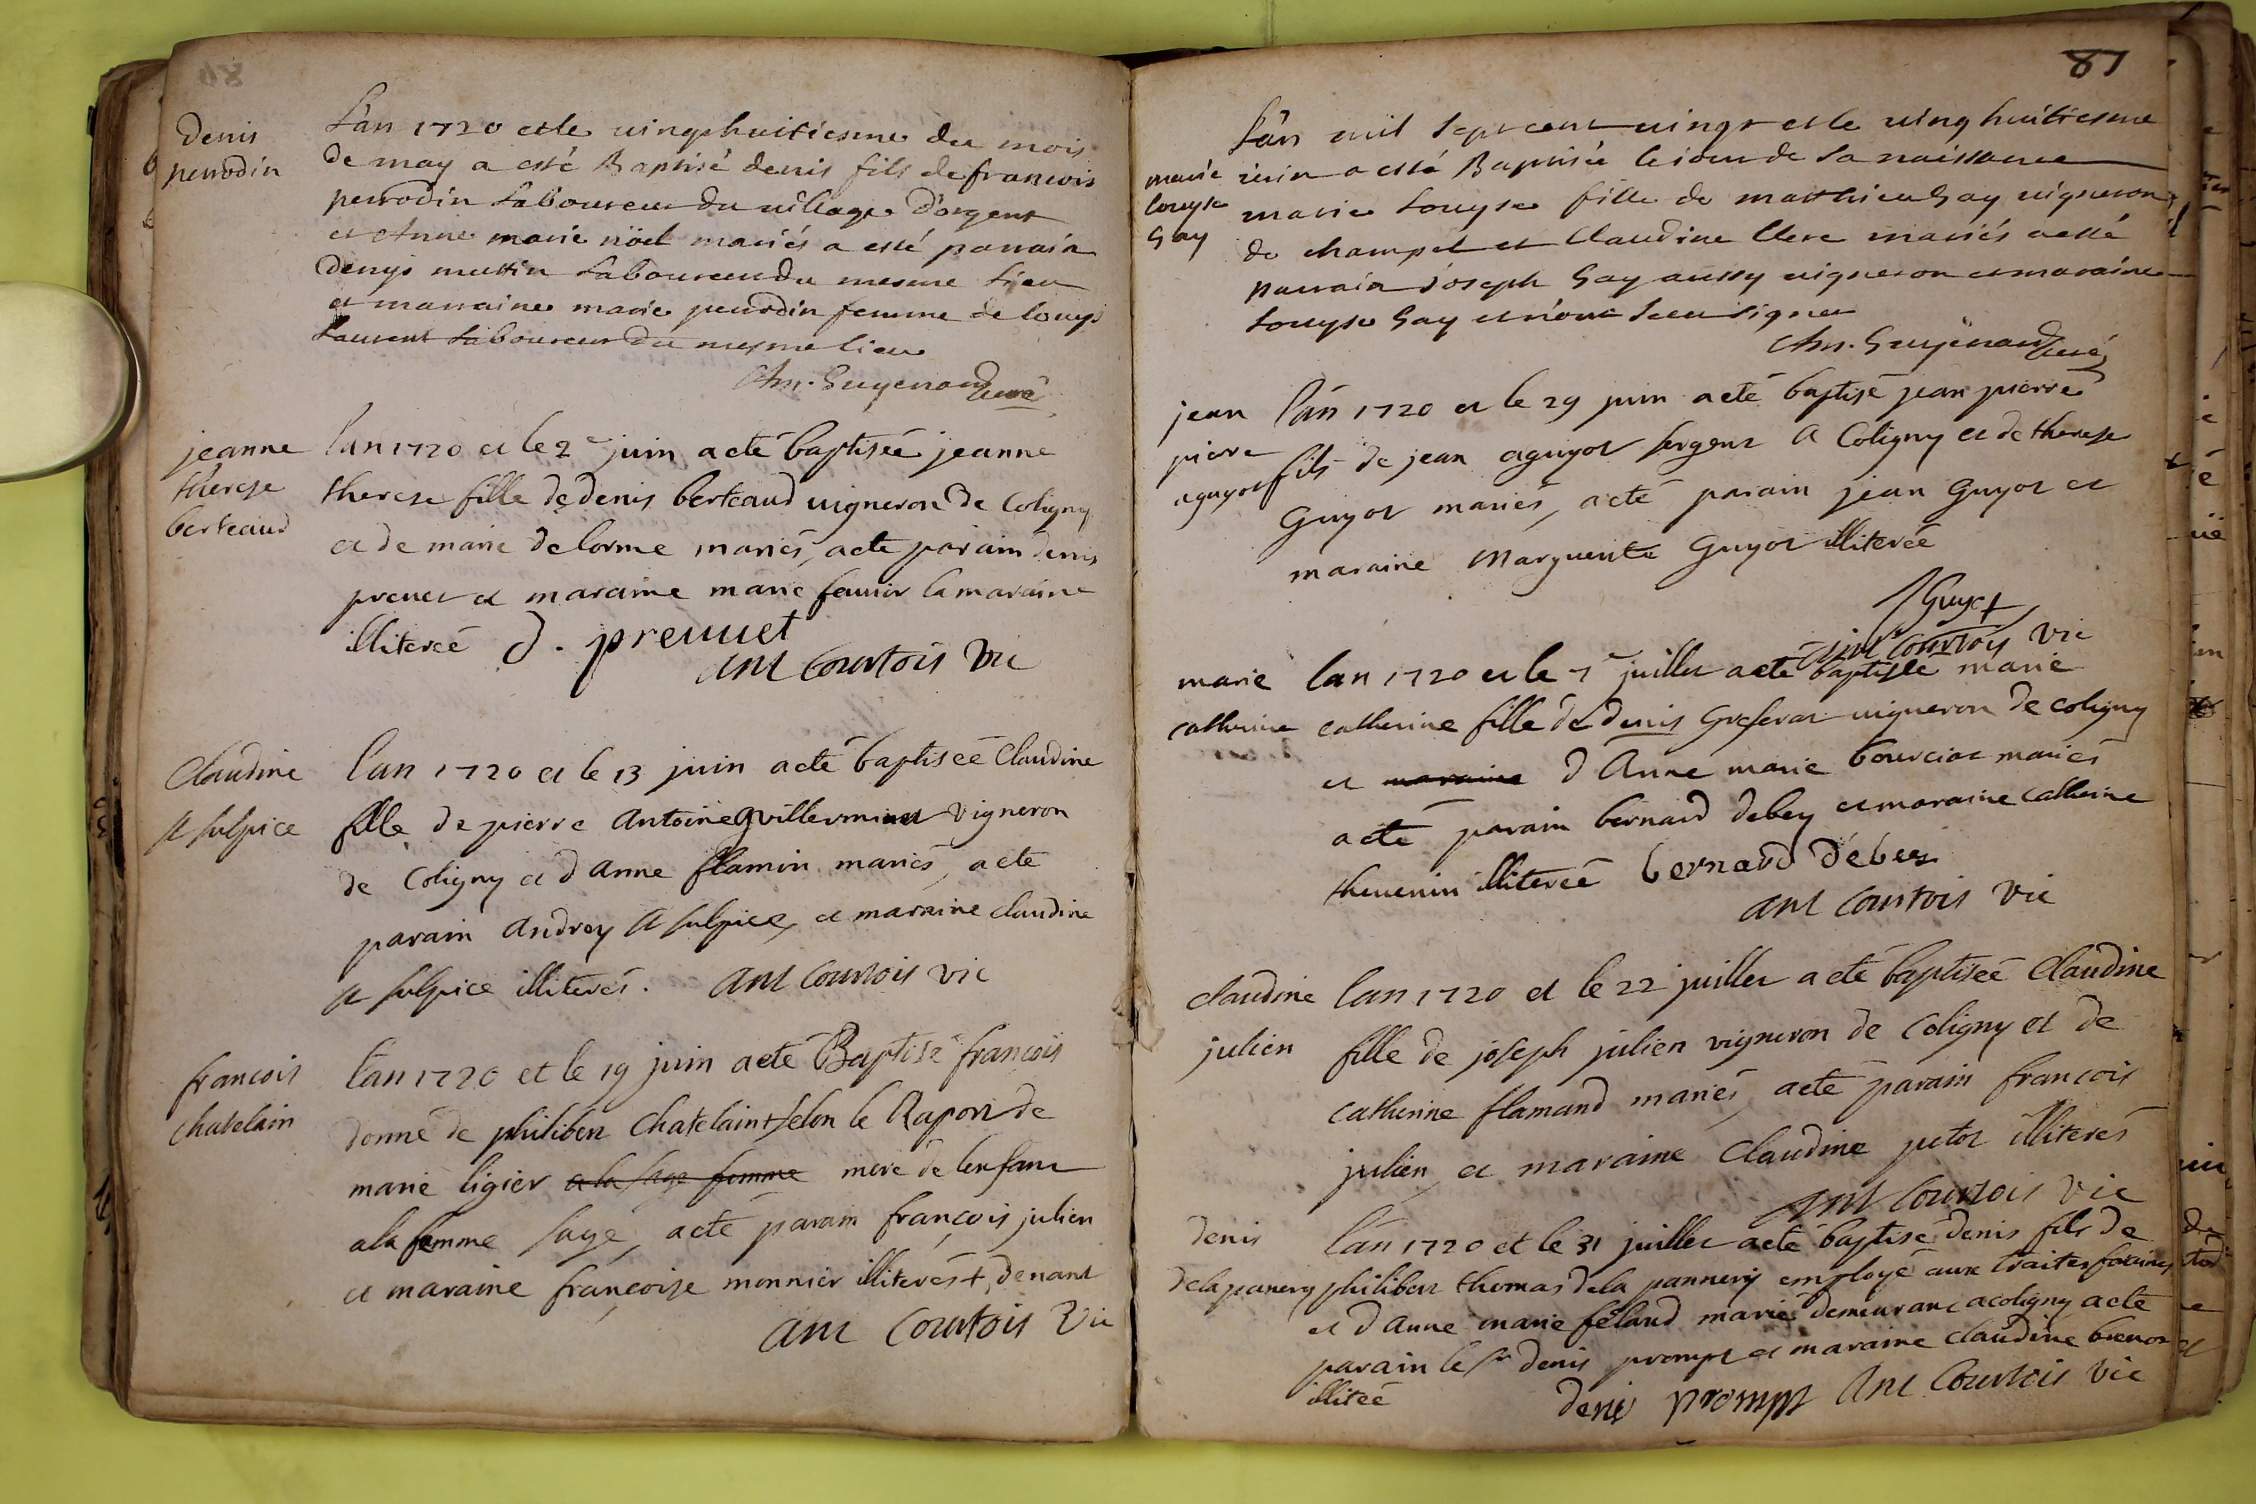 denis
perrodin
L'an 1720 et le vingthuitiesme du mois
de may a esté Baptisé denis fils de francois
perrodin Laboureur du village d'orgent
et Anne marie nöel mariés a esté parrain
denys muttin Laboureur du mesme Lieu
et marraine marie perrodin femme de louys
Laurent Laboureur du mesme lieu
Am. Guyenard curé
jeanne
therese
berteaud
lan 1720 et le 2e juin a eté baptiseé jeanne
therese fille de denis berteaud vigneron de Coligny
et de marie delorme mariés, a eté parain denis
preuet et maraine marie feuvier la maraine
illitereé d. preuuet
ant Courtois vic
Claudine
st sulpice
lan 1720 et le 13 juin a eté baptiseé Claudine
fille de pierre Antoine guilleminet vigneron
de Coligny et d anne flamin mariés, a eté
parain Andrey st sulpice, et maraine claudine
st sulpice illiterés. ant Courtois vic
francois
chatelain
l'an 1720 et le 19 juin a eté Baptisé francois
donné de philibert Chatelain + selon le Raport de
marie ligier a la sage femme mere de lenfant
a la femme sage, a eté parain françois julien
et maraine françoise monnier illiterés +, denant
ant Courtois Vic
87
marie
louyse
Gay
L'an mil sept cent vingt et le vinghuitiesme
iuin a esté Baptisée le iour de sa naissance
marie Louyse fille de matthieu Gay vigneron
de champel et Claudine Clerc mariés a esté
parrain Joseph Gay aussy vigneron et maraine
Louyse Gay et n'ont sceu signer
Am. Guyenard curé
jean
pierre
aguyot
l'an 1720 et le 29 juin a eté baptisé jean pierre
fils de jean aguyot sergent a Coligny et de therese
Guyot mariés, a eté parain jean Guyot et
maraine Marguerite Guyot illitereé
J Guyot
ant Courtois vic
marie
catherine
lan 1720 et le 7e juillet a eté baptiseé marie
catherine fille de denis Greferat vigneron de coligny
et maraine d Anne marie bourciat mariés
a eté parain bernard debey et maraine catherine
thevenin illitereé bernard débey
ant Courtois vic
claudine
julien
lan 1720 et le 22 juillet a eté baptiseé Claudine
fille de joseph julien vigneron de Coligny et de
catherine flamand mariés, a eté parain francois
julien, et maraine Claudine putot illiterés
ant Courtois vic
denis
delapanery
l'an 1720 et le 31 juillet a eté baptisé denis fils de
philibert thomas dela pannery employé aux traites foraines
et d anne marie féland mariés demeurant a coligny a eté
parain le sr denis prompt et maraine claudine brenot
illiteé
denis prompt Ant Courtois vic